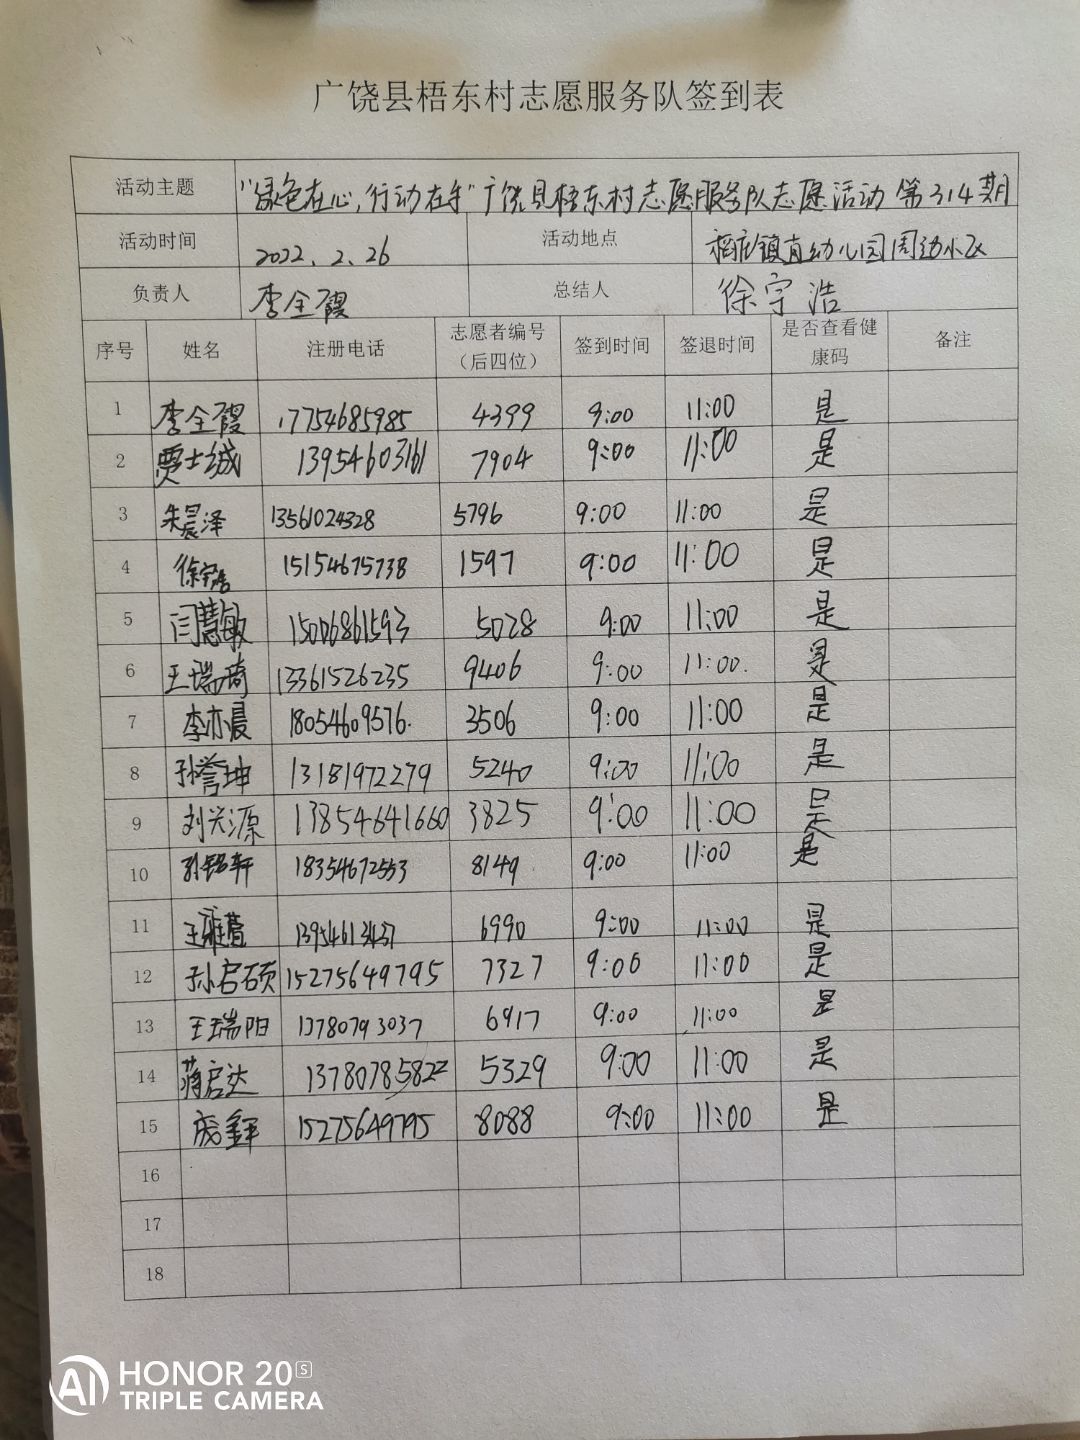 广饶县梧东村志愿服务队签到表
活动主题 "绿色在心,行动在手"广饶县梧东村志愿服务队志愿活动 第314期
活动时间 2022.2.26 活动地点 稻庄镇育幼儿园周边小区
负责人 李全霞 总结人 徐宇浩
序号 姓名 注册电话 志愿者编号(后四位) 签到时间 签退时间 是否查看健康码 备注
1 李全霞 17754685985 4399 9:00 11:00 是
2 贾士城 13954603161 7904 9:00 11:00 是
3 朱晨泽 13561024328 5796 9:00 11:00 是
4 徐宇浩 15154675738 1597 9:00 11:00 是
5 闫慧敏 15006861593 5028 9:00 11:00 是
6 王瑞琦 13361526235 9406 9:00 11:00. 是
7 李亦晨 18054609576. 3506 9:00 11:00 是
8 孙誉坤 13181972279 5240 9:00 11:00 是
9 刘兴源 13854641660 3825 9:00 11:00 是
10 孙铭轩 18354672553 8149 9:00 11:00 是
11 王雅萱 6990 9:00 11:00 是
12 孙启硕 15275649795 7327 9:00 11:00 是
13 王瑞阳 13780793037 6917 9:00 11:00 是
14 蒋启达 13780785822 5329 9:00 11:00 是
15 15275649795 8088 9:00 11:00 是
16
17
18
AI HONOR 20S
TRIPLE CAMERA